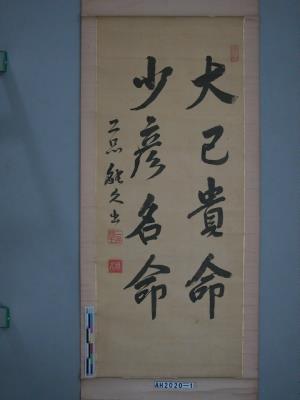 大己貴命
少彦名命
二品能久書
AH2020-1